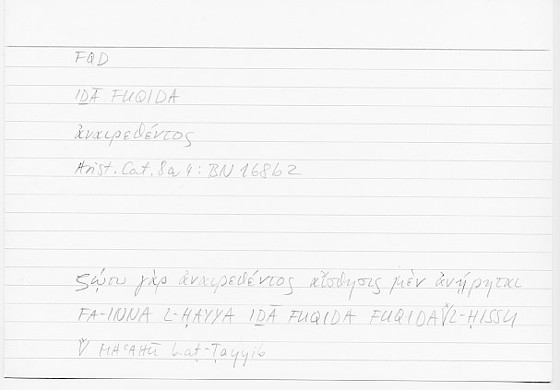 FQD
IḎĀ FUQIDA
ἀναιρεθέντος
Arist. Cat. 8a 4: BN 168b2
ζῴου γὰρ ἀναιρεθέντος αἴσθησις μὲν ἀνῄρηται
FA-INNA L-ḤAYYA IḎĀ FUQIDA FUQIDA L-ḤISSU
MAʿAHŪ Laṭ-Ṭayyib